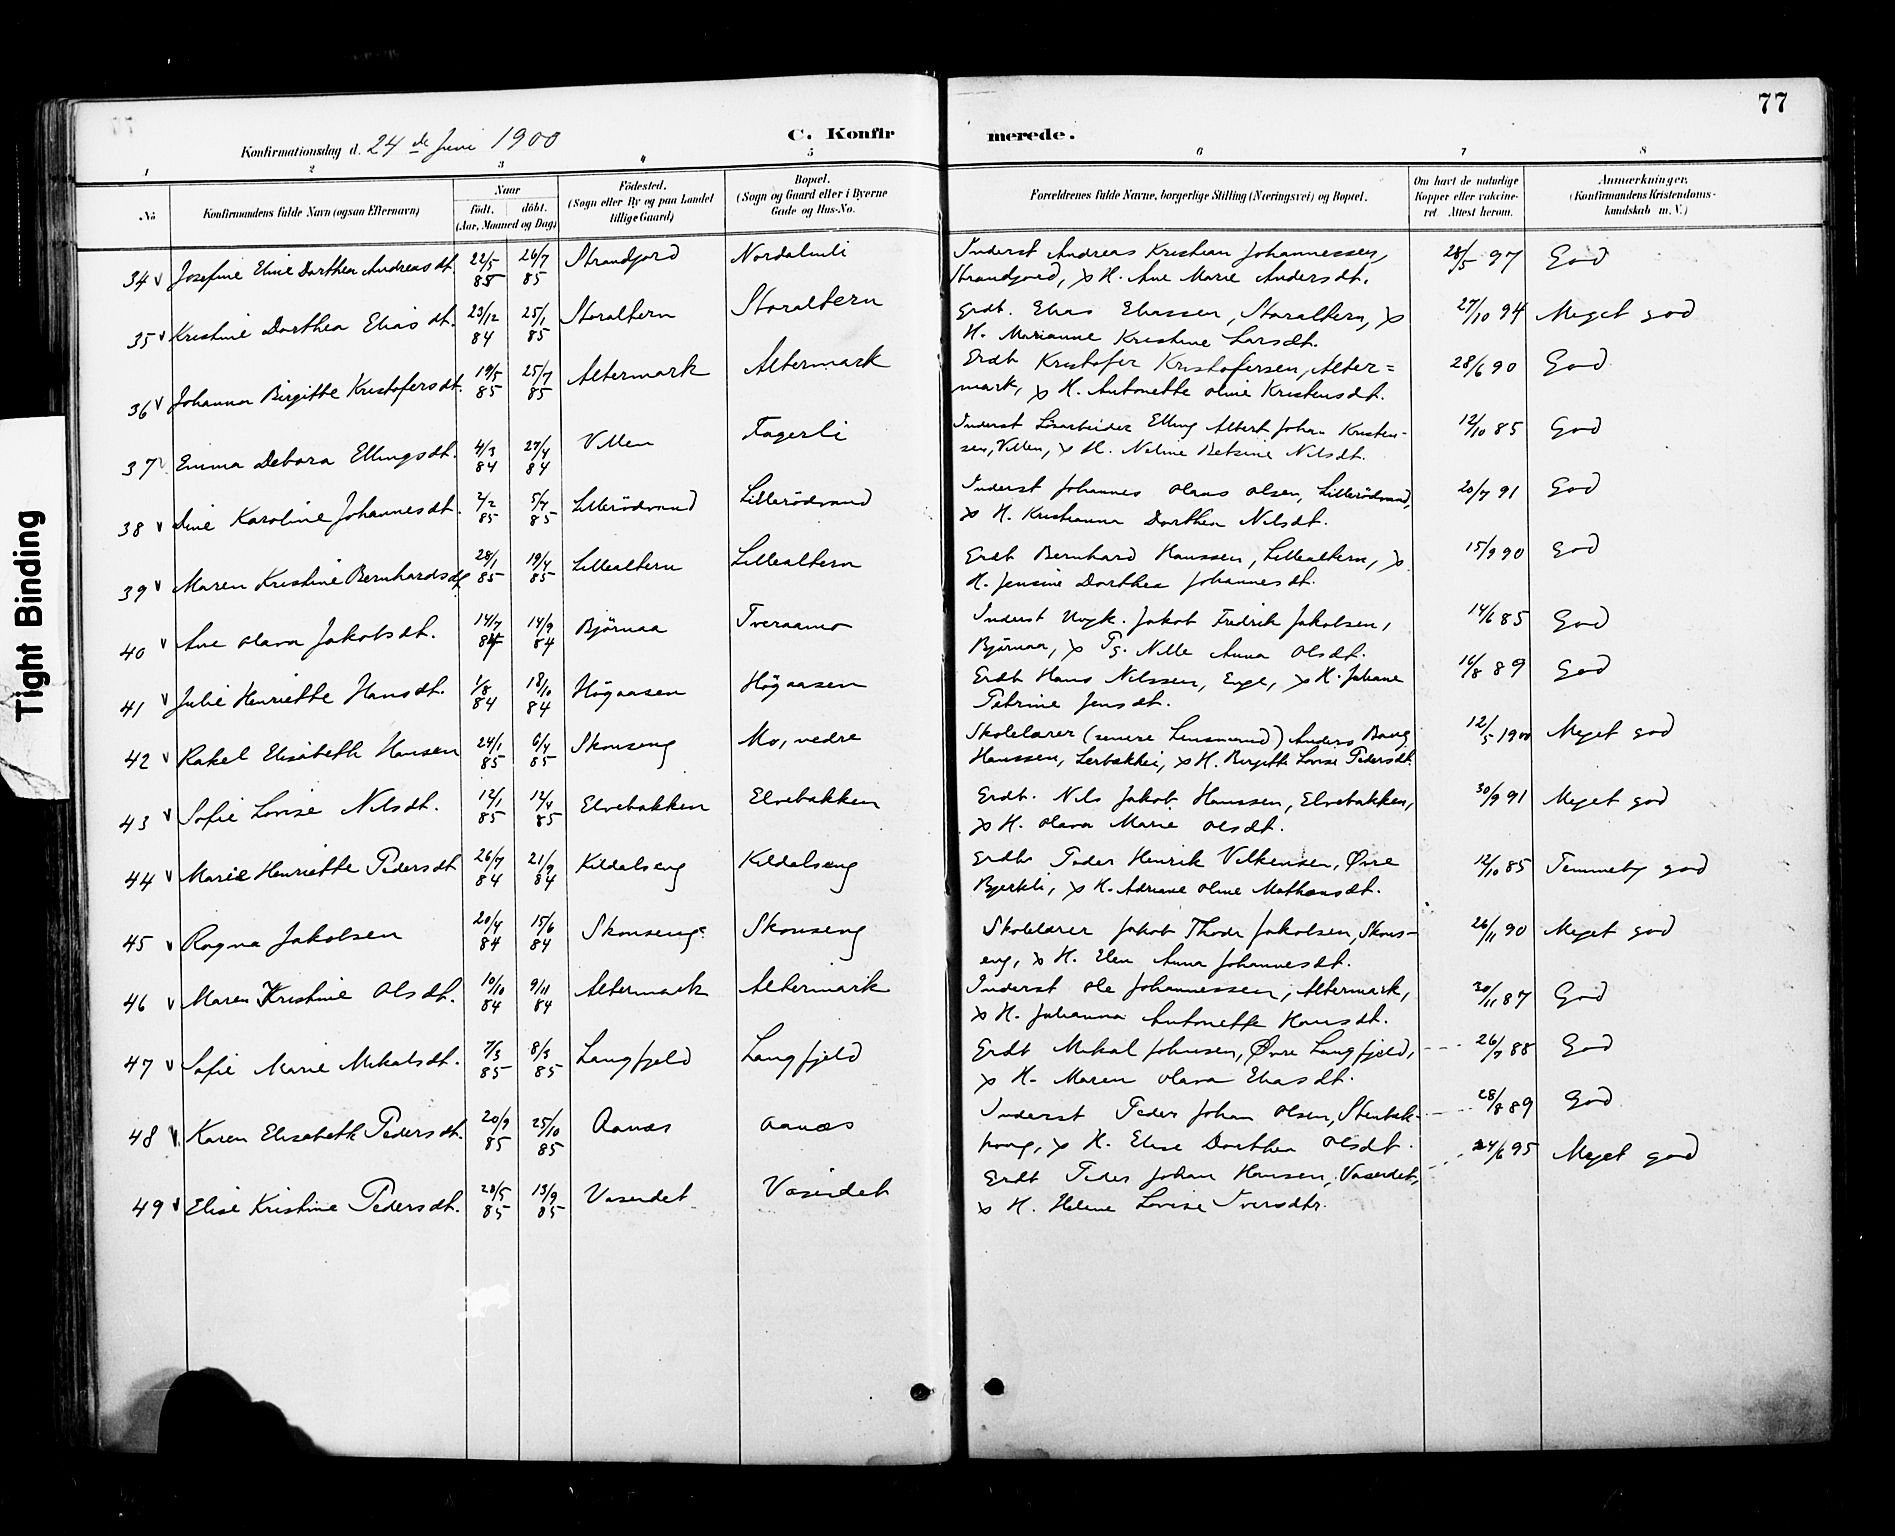 77
Konfirmationsdag d. 24de Juni 1900
C. Konfirmerede.
1 2 3 4 5 6 7 8
No
Konfirmandens fulde Navn (ogsaa Efternavn)
Naar
födt. döbt.
(Aar, Maaned og Dag)
Födested.
(Sogn eller By og paa Landet
tillige Gaard)
Bopæl.
(Sogn og Gaard eller i Byerne
Gade og Hus-No.
Forældrenes fulde Navne, borgerlige Stilling (Næringsvei) og Bopæl.
Om havt de naturlige
Kopper eller vaccine-
ret. Attest herom.
Anmærkninger,
(Konfirmandens Kristendoms-
kundskab m. V.)
34 v Josefine Eline Dorthea Andreasdt. 22/5 85 26/7 85 Strandjord Nordalsmli Inderst Andreas Kristian Johannessen, 28/5 97 God
Strandjord, x H. Ane Marie Andersdt.
35 v Kristine Dorthea Eliasdt. 23/12 84 25/1 85 Storaltern Storaltern Grdt. Elias Eliassen, Storaltern, x 27/10 94 Meget god
H. Marianne Kristine Larsdt.
36 v Johanna Birgitte Kristofersdt. 19/5 85 25/7 85 Altermark Altermark Grdt Kristofer Kristofersen, Alter= 28/6 90 God
mark, x H. Antonette Oline Kristensdt.
37 v Emma Debora Ellingsdt. 4/3 84 27/4 84 Villen Fagerli Inderst Elling Albert Johan Kristen- 12/10 85 God
sen, Villen, x H. Neline Betsine Nilsdt.
38 v Line Karoline Johannesdt. 2/2 85 5/4 85 Lillerödvand Lillerödvand Inderst Johannes Olaus Olsen, Lillerödvand, 20/7 91 God
x H. Kristianna Dorthea Nilsdt.
39 v Maren Kristine Bernhardsdt 28/1 85 19/4 85 Lillealtern Lillealtern Grdt Bernhard Hanssen, Lillealtern, x 15/9 90 God
H. Jensine Dorthea Johannesdt.
40 v Ane Olava Jakobsdt. 14/7 84 14/9 84 Björnaa Tveraamo Inderst Ungk. Jakob Fredrik Jakobsen, 14/6 85 God
Björnaa, x Pg. Nille Anna Olsdt.
41 v Julie Henriette Hansdt. 1/8 84 18/10 84 Högaasen Högaasen Grdt Hans Nilssen, Enge, x H. Johane 16/8 89 God
Petrine Jensdt.
42 v Rakel Elisabeth Hansen 24/1 85 6/4 85 Skonseng Mo, nedre Skolelærer (senere Lensmand) Anders Bang 12/5 1900 Meget god
Hanssen, Lerbakkei, x H. Birgitte Lovise Pedersdt.
43 v Sofie Lovise Nilsdt. 12/1 85 12/4 85 Elvebakken Elvebakken Grdt. Nils Jakob Hanssen, Elvebakken, 30/9 91 Meget god
x H. Olava Marie Olsdt.
44 v Marie Henriette Pedersdt 26/7 84 21/9 84 Kildalseng Kildalseng Grdt. Peder Henrik Vilkensen, Øvre 12/10 85 Temmelig god
Bjerkli, x H. Adriane Oline Mathæusdt.
45 v Ragna Jakobsen 20/4 84 15/6 84 Skonseng Skonseng Skolelærer Jakob Thode Jakobsen, Skons- 26/11 90 Meget god
eng, x H. Elen Anna Johannesdt.
46 v Maren Kristine Olsdt. 10/10 84 9/11 84 Altermark Altermark Inderst Ole Johannessen, Altermark, 30/11 87 God
x H. Johanna Antonette Hansdt.
47 v Sofie Marie Mikalsdt. 7/3 85 8/3 85 Langfjeld Langfjeld Grdt Mikal Johnsen, Øvre Langfjeld, 26/7 88 God
x H. Maren Olava Eliasdt.
48 v Karen Elisabeth Pedersdt. 20/9 85 25/10 85 Aanæs Aanæs Inderst Peder Johan Olsen, Stenbæk- 28/8 89 God
pong, x H. Elise Dorthea Olsdt.
49 v Elise Kristine Pedersdt. 28/5 85 13/9 85 Vaserdet Vaserdet Grdt Peder Johan Hansen, Vaserdet, 24/6 95 Meget god
x H. Helene Lovise Iversdtr.
Tight Binding